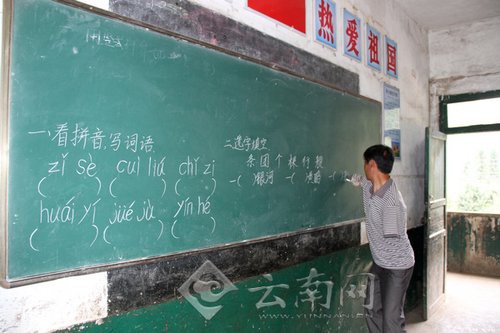 热爱祖国
一、看拼音,写词语
zǐ sè cuì liú chí zi
( ) ( ) ( )
huái yí jüé jù yín hé
( ) ( ) ( )
二、选字填空
条 团 个 枝 行
一( )银河 一(
云南网
WWW.YUNNAN.CN